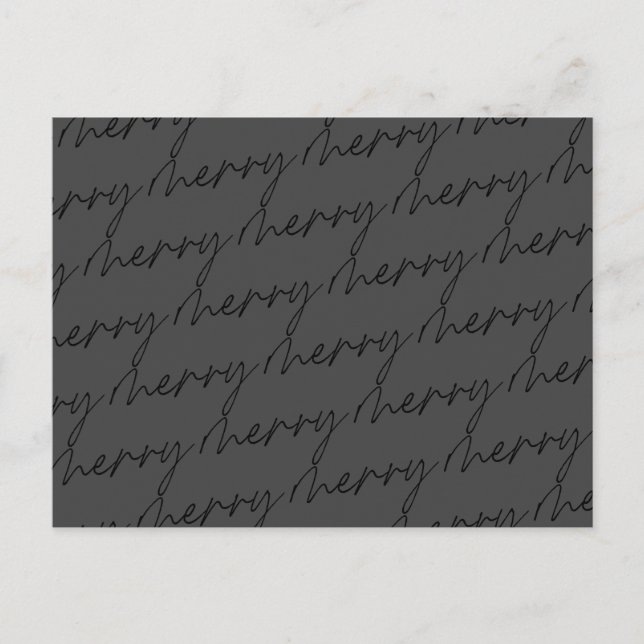 merry
erry merry merry mer
y merry merry merry m
erry merry merry merry
rry merry merry merry m
merry merry merry mer
ry merry merry merry
merry me